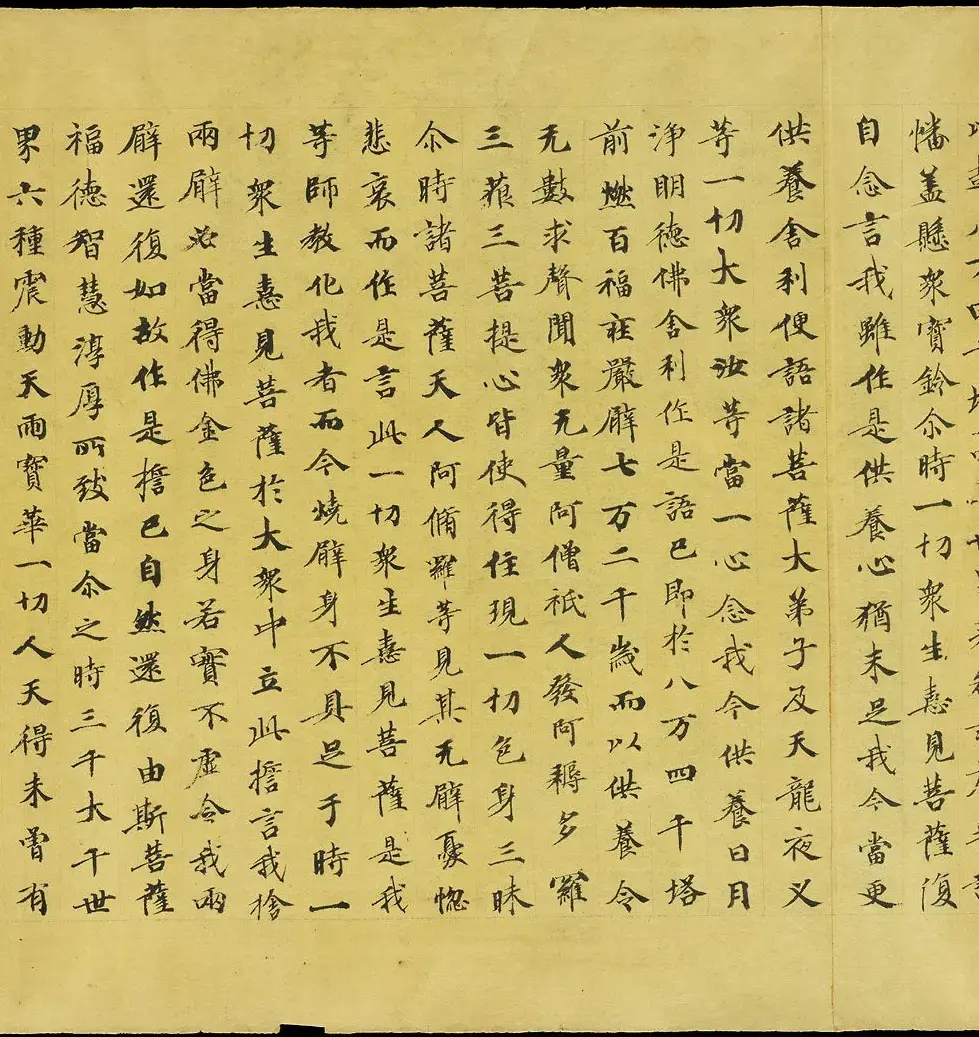 幡盖懸衆寶鈴尒時一切衆生憙見菩薩復
自念言我雖作是供養心猶未足我今當更
供養舍利便語諸菩薩大弟子及天龍夜叉
等一切大衆汝等當一心念我今供養日月
淨明德佛舍利作是語已即於八万四千塔
前燃百福莊嚴臂七万二千歲而以供養令
无數求聲聞衆无量阿僧祇人發阿耨多羅
三藐三菩提心皆使得住現一切色身三昧
尒時諸菩薩天人阿脩羅等見其无臂憂惱
悲哀而作是言此一切衆生憙見菩薩是我
等師教化我者而今燒臂身不具足于時一
切衆生憙見菩薩於大衆中立此誓言我捨
兩臂必當得佛金色之身若實不虛令我兩
臂還復如故作是誓已自然還復由斯菩薩
福德智慧淳厚所致當尒之時三千大千世
界六種震動天雨寶華一切人天得未曾有